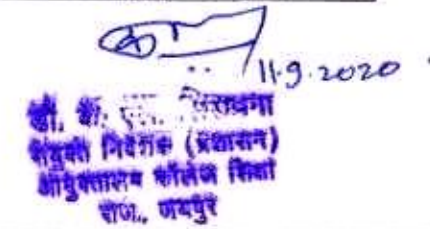 11.9.2020
डॉ. के. एल.
संयुक्त निदेशक (प्रशासन)
आयुक्तालय कॉलेज शिक्षा
राज., जयपुर